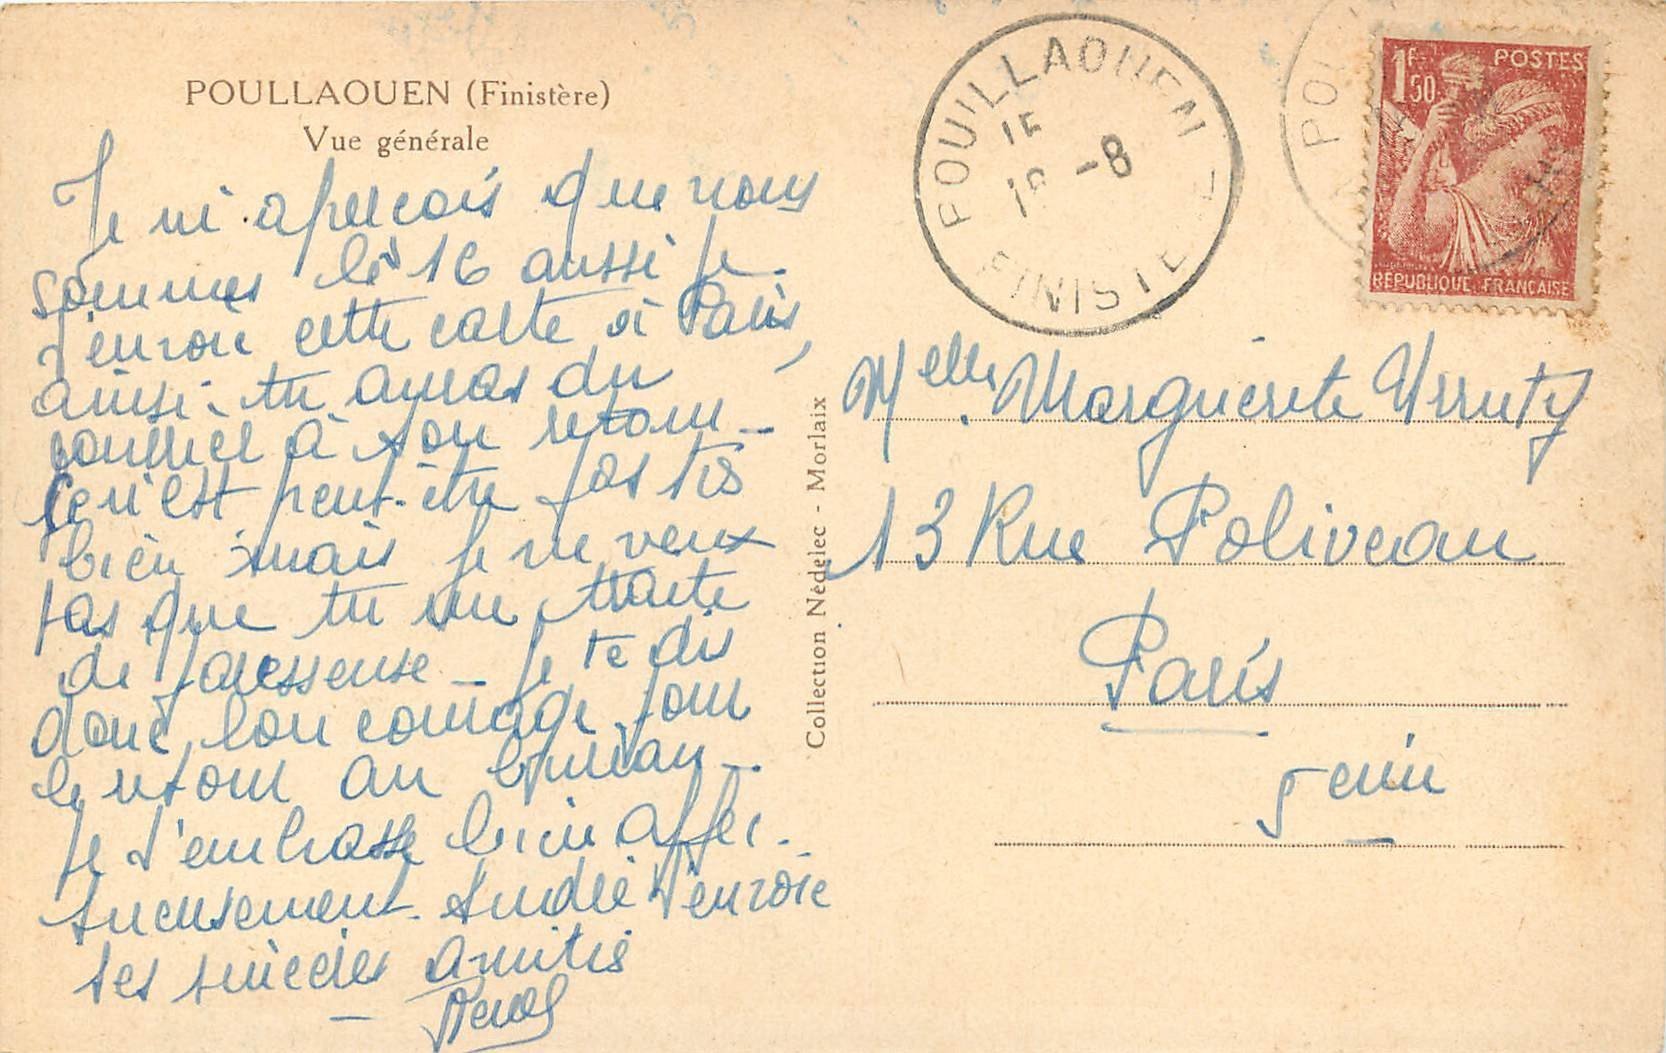 POULLAOUEN (Finistère)
Vue générale
Je m'aperçois que nous
sommes le 16 aussi je
t'envoie cette carte à Paris,
ainsi tu auras du
courrier à ton retour _
Ce n'est peut-être pas très
bien mais je ne veux
pas que tu me traite
de paresseuse _ Je te dis
donc bon courage pour
le retour au bureau _
Je t'embrasse bien affec-
tueusement. André t'envoie
ses sincères amitiés
Collection Nédelec - Morlaix
POUILLAOUEN
15
18 -8
FINISTE
1F50
POSTES
REPUBLIQUE FRANÇAISE
Melle Marguerite Urruty
13 Rue Poliveau
Paris
5 eme